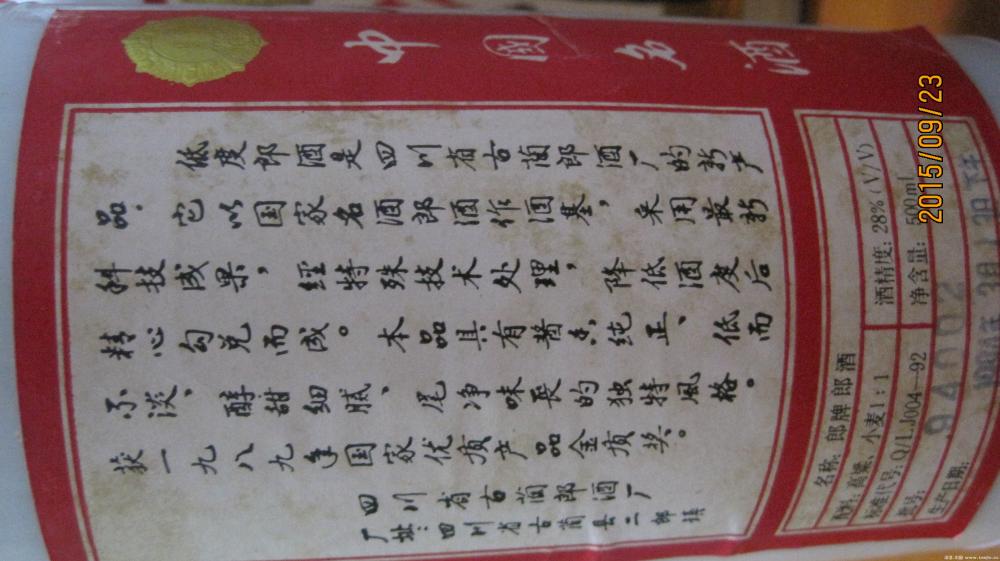 中國名酒
低度郎酒是四川省古蔺郎酒厂的新产
品。它以国家名酒郎酒作酒基，采用最新
科技成果，经特殊技术处理，降低酒度后
精心勾兑而成。本品具有酱香纯正、低而
不淡、醇甜细腻、尾净味長的独特風格。
获一九八九年国家优质产品金质奖。
四川省古蔺郎酒厂
厂址：四川省古蔺县二郎镇
名称：郎牌郎酒
配料：高粱、小麦1：1
酒精度：28%（V/V）
标准代号：Q/LJ004—92
净含量：500ml
批号：94002
生产日期：
2015/09/23